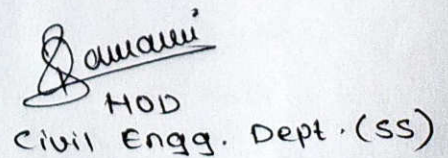 HOD
Civil Engg. Dept. (SS)